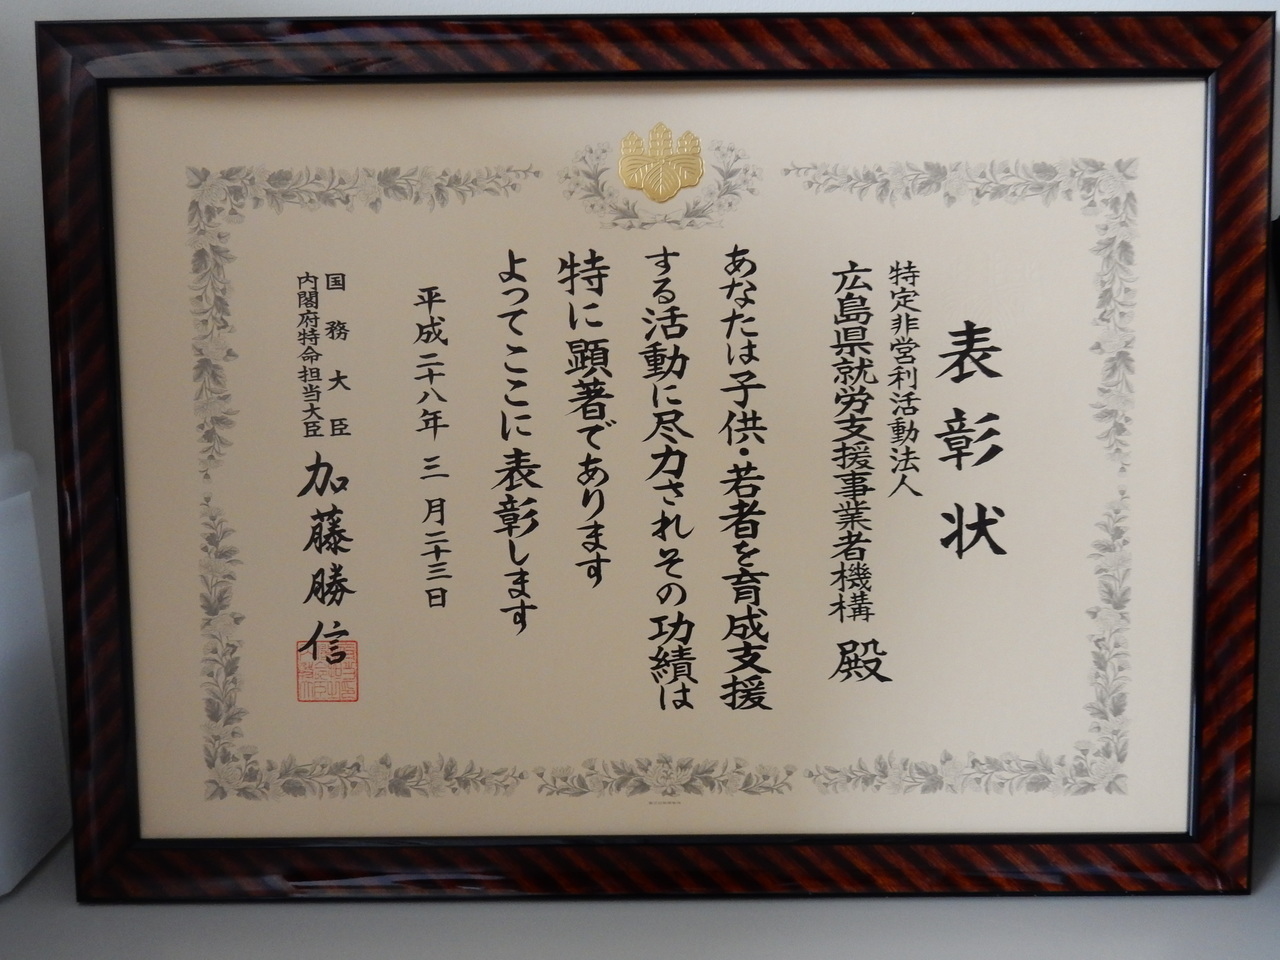 表彰状
特定非営利活動法人
広島県就労支援事業者機構 殿
あなたは子供・若者を育成支援
する活動に尽力されその功績は
特に顕著であります
よってここに表彰します
平成二十八年 三 月二十三日
国務大臣
内閣府特命担当大臣
加藤勝信